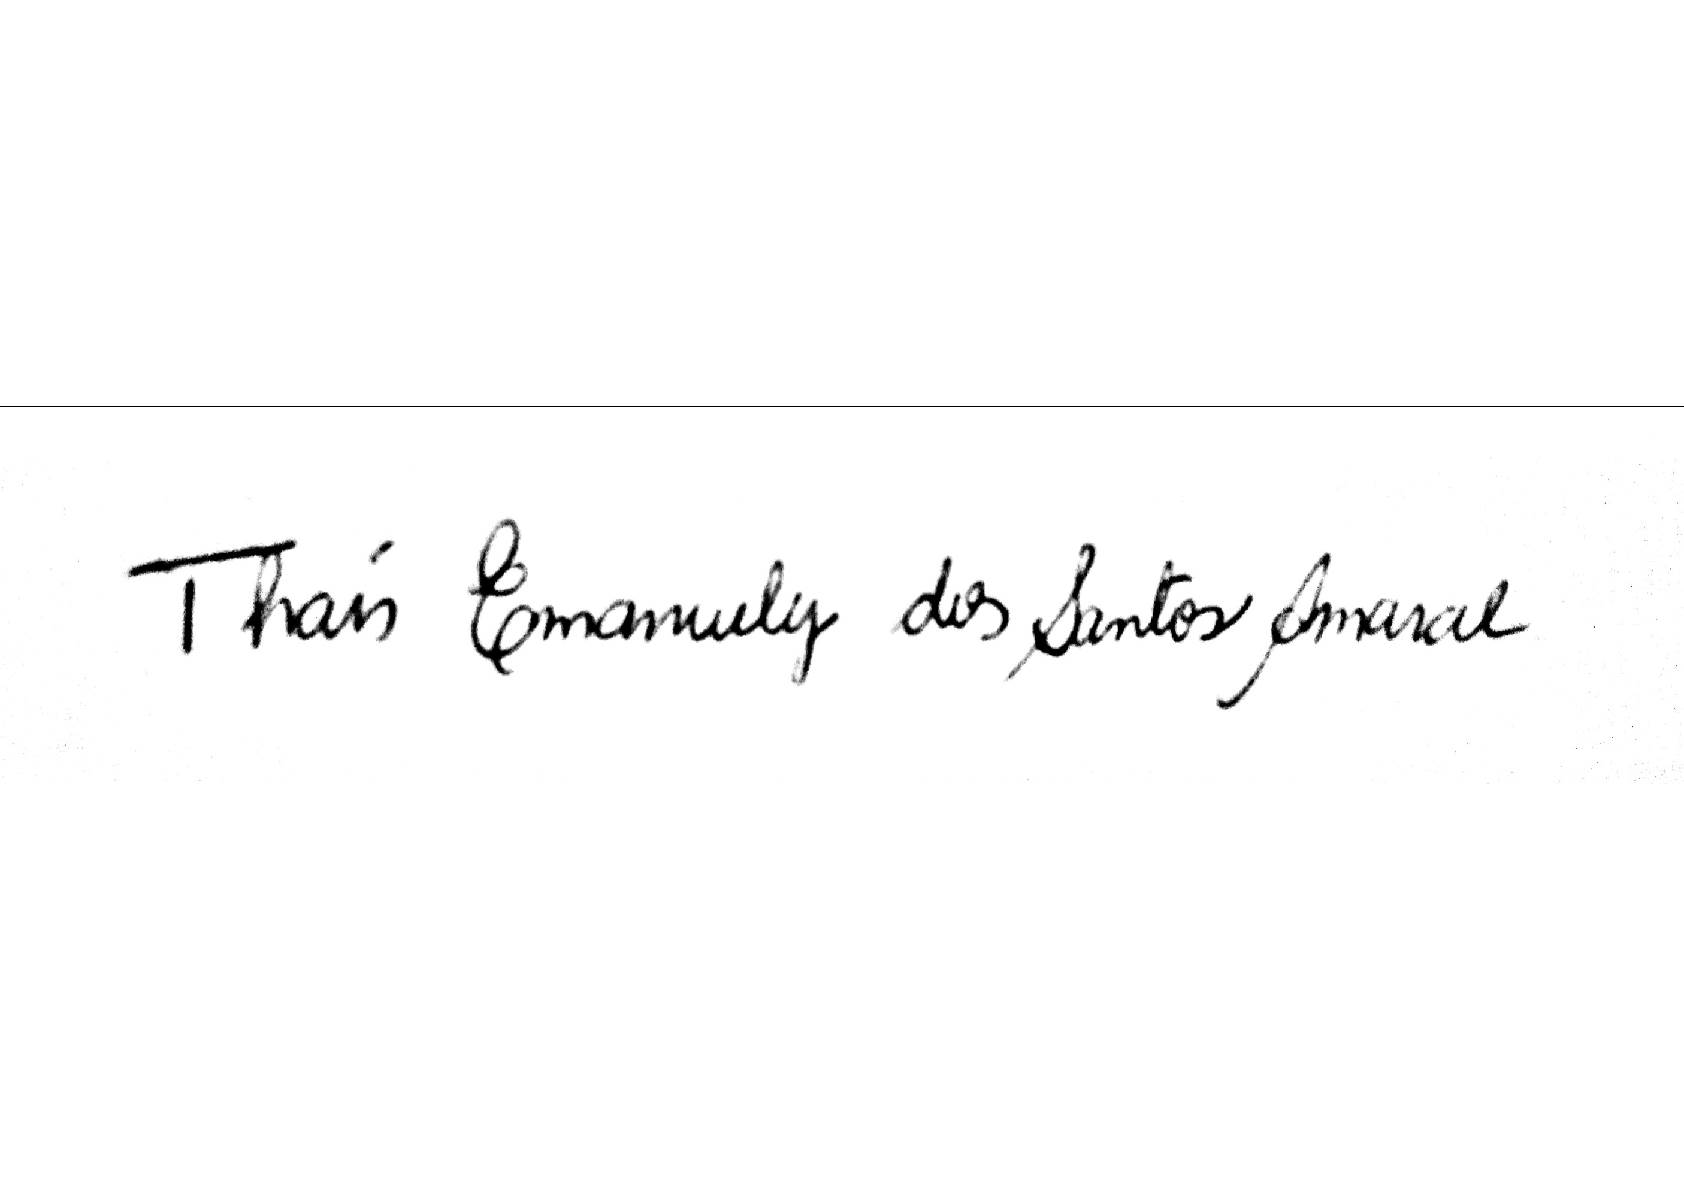 Thaís Emanuely dos Santos Amaral